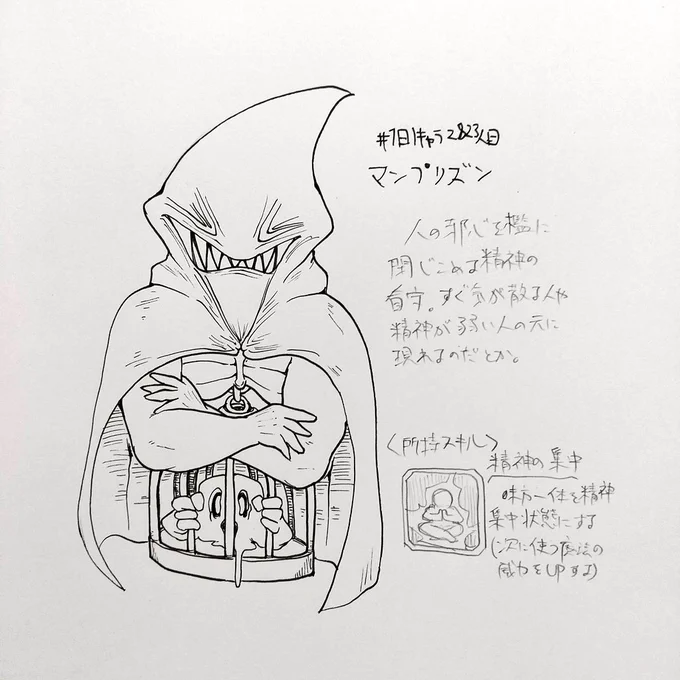 #1日1キャラ2823人目
マンプリズン
人の邪心を檻に
閉じこめる精神の
看守。すぐ気が散る人や
精神が弱い人の元に
現れるのだとか。
〈所持スキル〉
精神の集中
味方一体を精神
集中状態にする
(次に使う魔法の
威力をUPする)